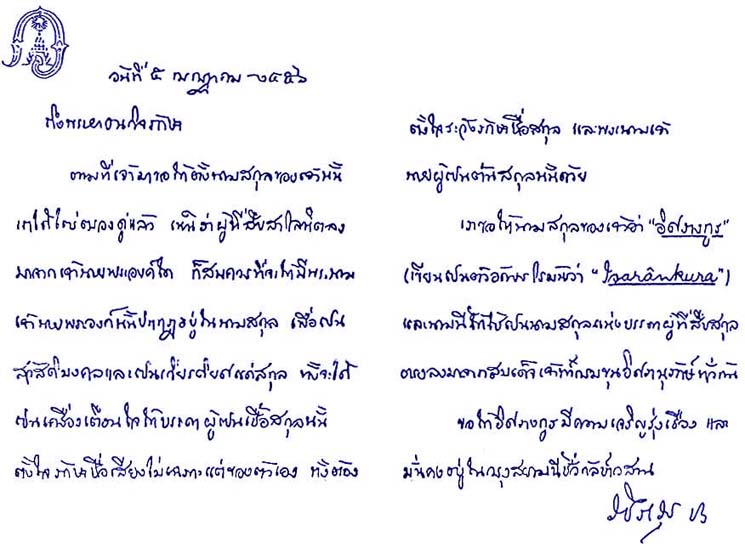 วันที่ ๕ กรกฎาคม ๒๔๕๖
ถึง
ตามที่เจ้ามาขอให้ตั้งนามสกุลของเจ้านั้น
เราได้ใคร่ตรองดูแล้ว เห็นว่าผู้ที่สืบสายโลหิตลง
มาจากเจ้านายพระองค์ใด ก็สมควรที่จะให้มีพระนาม
เจ้านายพระองค์นั้นปรากฏอยู่ในนามสกุล เพื่อเปน
สวัสดิมงคลและเปนเกียรติยศแก่สกุล ทั้งจะได้
เปนเครื่องเตือนใจให้บรรดาผู้เปนเชื้อสกุลนั้น
ตั้งใจรักษาชื่อเสียงไม่เฉภาะแต่ของตัวเอง ทั้งต้อง
ตั้งใจระวังรักษาชื่อสกุล และพระนามเจ้า
นายผู้เปนต้นสกุลนั้นด้วย
เราขอให้นามสกุลของเจ้าว่า "อิศรางกูร"
(เขียนเปนตัวอักษรโรมันว่า "Isarânkura")
และนามนี้ให้ใช้เปนนามสกุลแห่งบรรดาผู้ที่สืบสกุล
ตรงลงมาจากสมเด็จเจ้าฟ้ากรมขุนอิศรานุรักษ์ทั่วกัน
ขอให้อิศรางกูรมีความเจริญรุ่งเรือง และ
มั่นคงอยู่ในกรุงสยามนี้ชั่วกัลปาวสาน